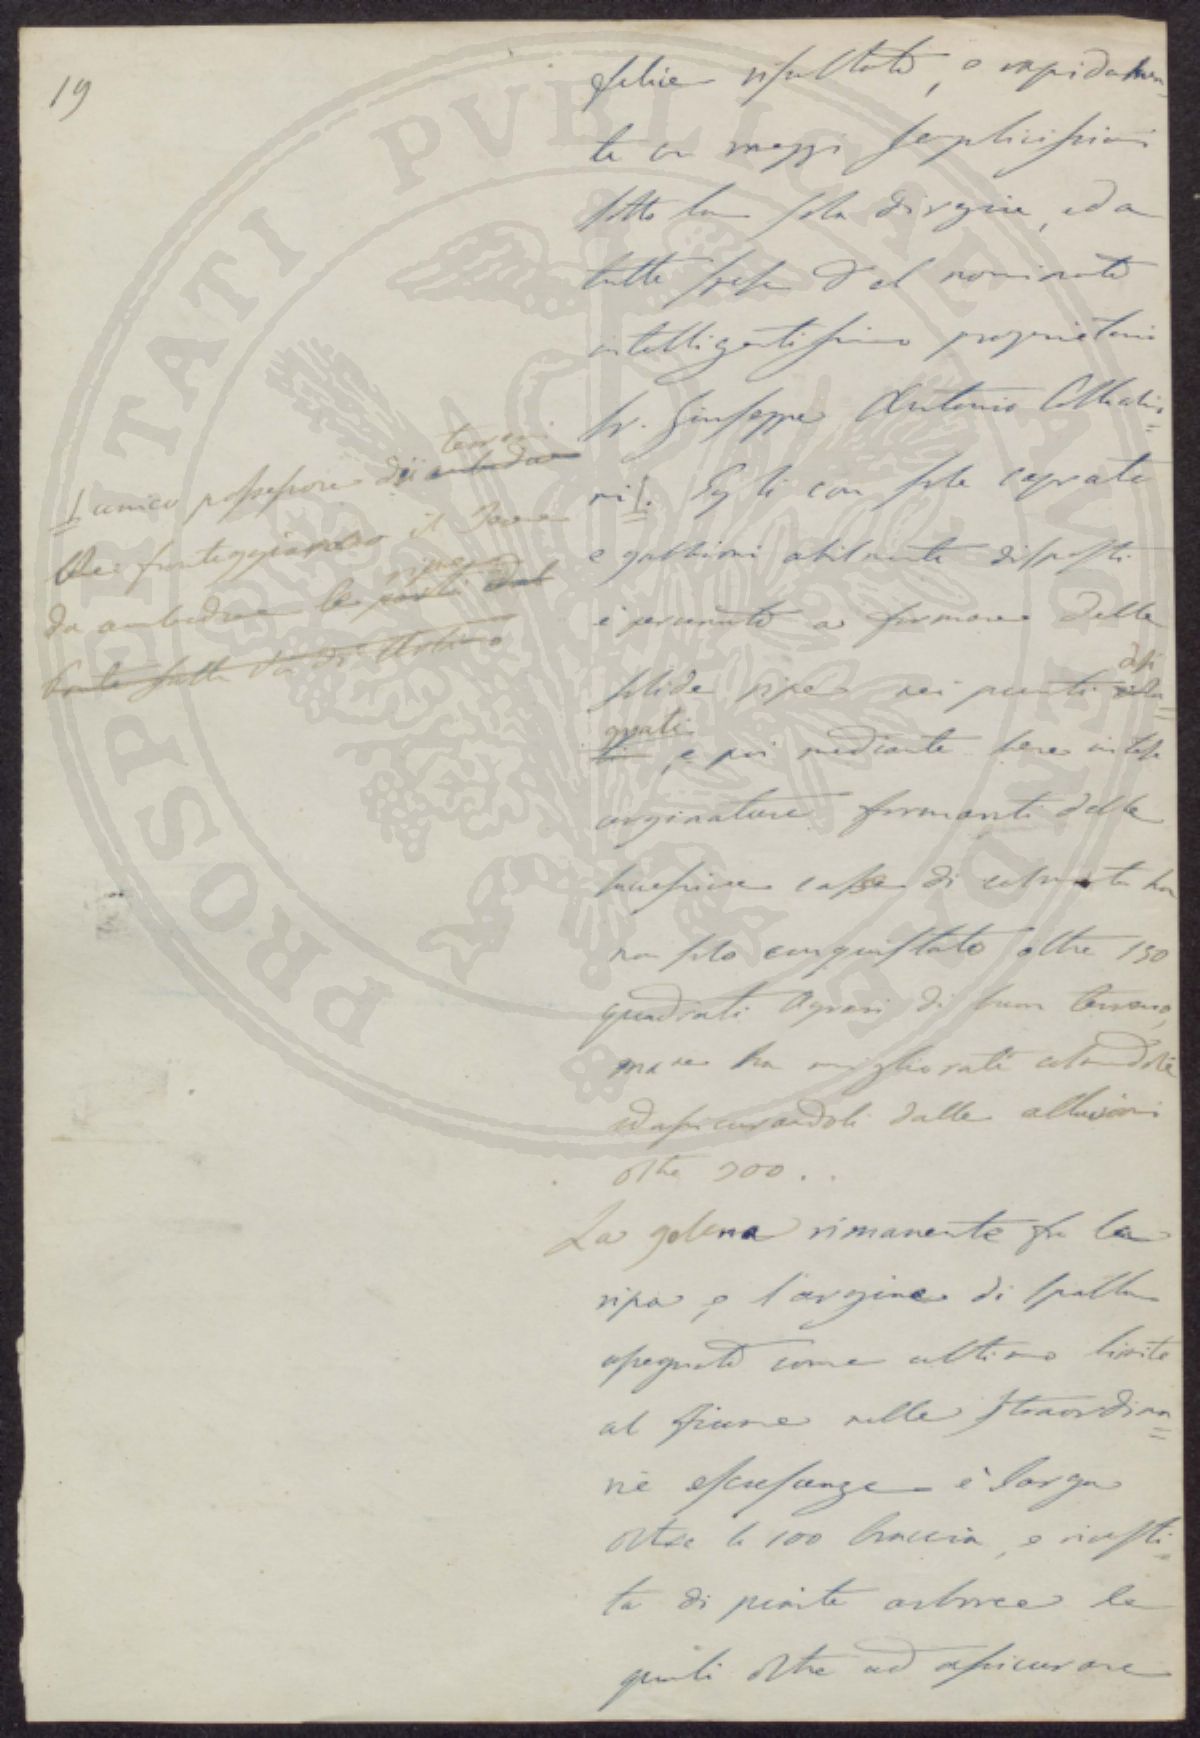 19
felice risultato, e rapidamen=
te con mezzi semplicissimi
sotto la sola direzione, ed a
tutte spese del nominato
intelligentissimo proprietario
Sr. Giuseppe Antonio Collachio=
ni Egli con sole
e gabbioni abilmente disposti
è pervenuto a formare delle
solide ripe nei punti desi
gnati, e poi mediante bene intese
arginature formanti delle
successive casse di colmata ha
non solo conquistato oltre 150
quadrati Agrari di buon terreno,
ma ne ha migliorati colmandoli
ed assicurandoli dalle alluvioni
oltre 900..
La golena rimanente fra la
ripa, e l'argine di spalla
assegnato come ultimo limite
al fiume nelle straordina=
rie escrescenze è larga
oltre le 100 braccia, e rivesti=
ta di piante arboree le
quali oltre ad assicurare
unico possessore dei terreni
che fronteggiavano il
da ambedue le ripe parti dal
Ponte